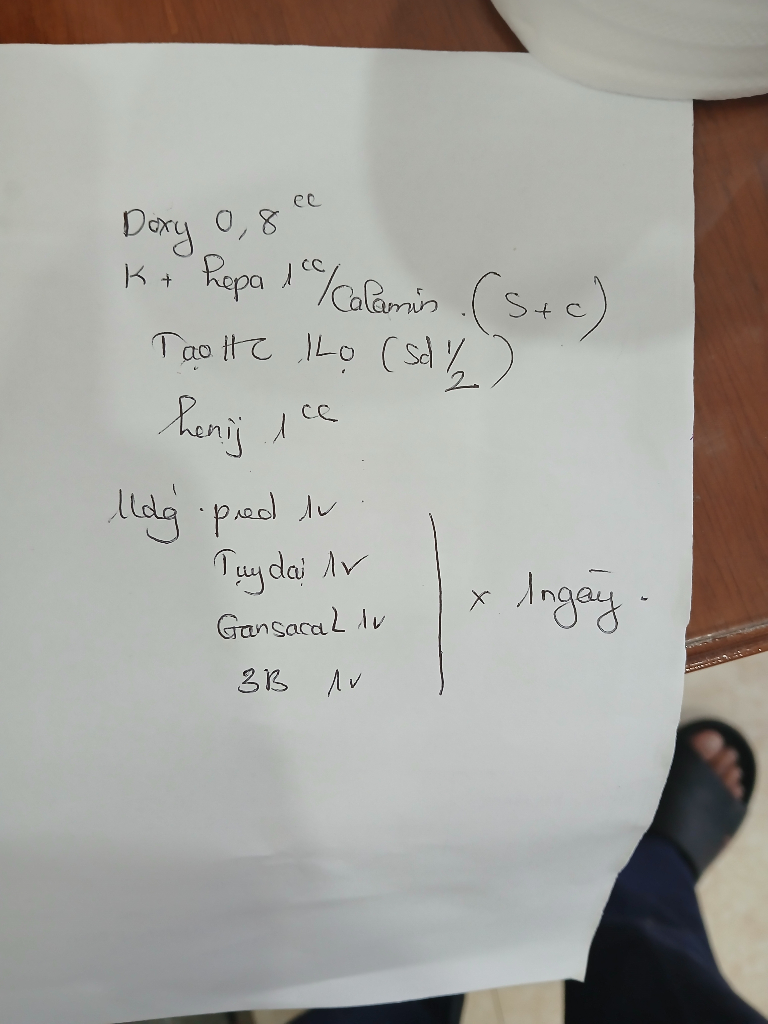 Doxy 0,8 cc
K + hepa 1cc/Calamin. (S + c)
Tạo HC 1Lọ (Sd 1/2)
henij 1cc
pred 1v
Tụy dại 1v
Gansacal 1v
3B 1v
x 1ngày.